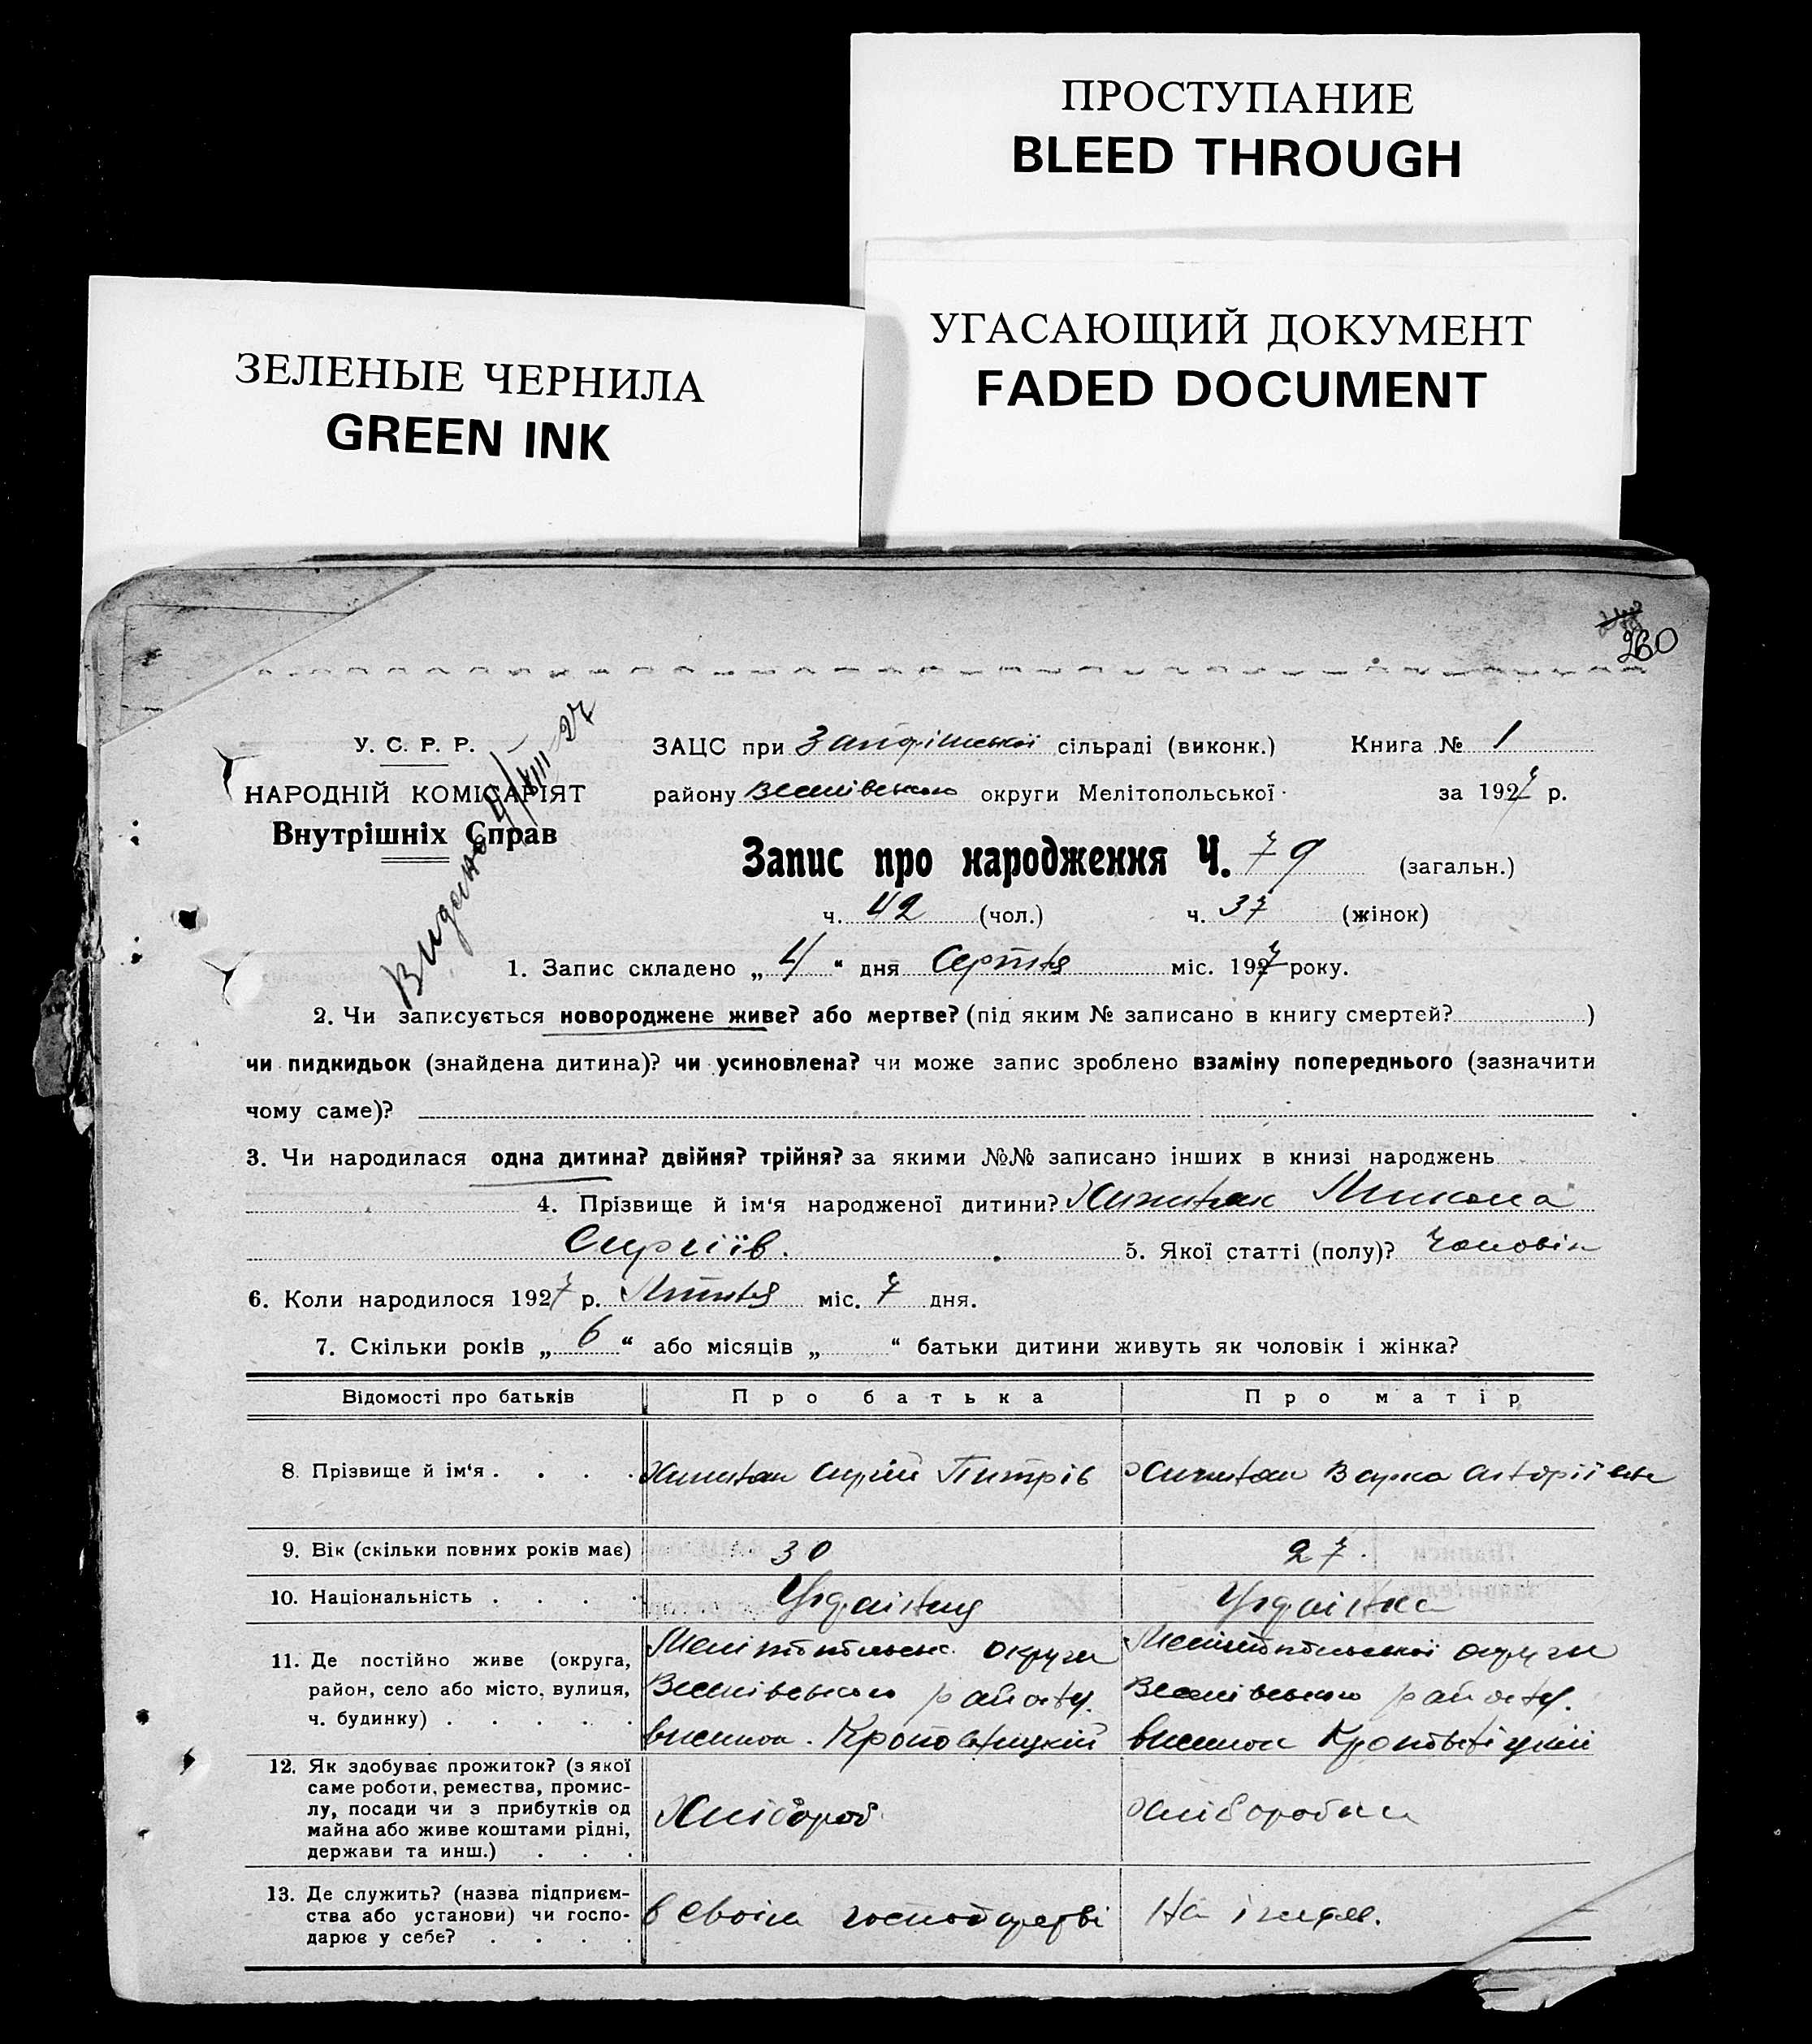 ПРОСТУПАНИЕ
BLEED THROUGH
УГАСАЮЩИЙ ДОКУМЕНТ
FADED DOCUMENT
ЗЕЛЕНЫЕ ЧЕРНИЛА
GREEN INK
260
У. С. Р. Р.
НАРОДНІЙ КОМІСАРІЯТ
Внутрішніх Справ
Видано 4/VIII-27
ЗАЦС при сільраді (виконк.) Книга № 1
району округи Мелітопольської за 1927 р.
Запис про народження Ч. 79 (загальн.)
ч. 42 (чол.) ч. 37 (жінок)
1. Запис складено „ 4 “ дня Серпня міс. 1927 року.
2. Чи записується новороджене живе? або мертве? (під яким № записано в книгу смертей? )
чи пидкидьок (знайдена дитина)? чи усиновлена? чи може запис зроблено взаміну попереднього (зазначити
чому саме)?
3. Чи народилася одна дитина? двійня? трійня? за якими №№ записано інших в книзі народжень
4. Прізвище й ім‘я народженої дитини? Микола
Сиргіїв. 5. Якої статті (полу)? Чоловік
6. Коли народилося 1927 р. Липня міс. 7 дня.
7. Скільки років „ 6 “ або місяців „ “ батьки дитини живуть як чоловік і жінка?
Відомості про батьків Про батька Про матір
8. Прізвище й ім‘я . . . . Сиргій Питрів
9. Вік (скільки повних років має) 30 27.
10. Національність . . . . Українець Українка
11. Де постійно живе (округа, район, село або місто, вулиця, ч. будинку) . . . . .
Мелітопольськ. округи
району.
Кроповницкий
Мелітопольської округи
району.
12. Як здобуває прожиток? (з якої саме роботи, ремества, промислу, посади чи з прибутків од майна або живе коштами рідні, держави та инш.) . . .
Хлібороб
хліборобка
13. Де служить? (назва підприємства або установи) чи господарює у себе? . . . .
в своїм господарстві
На ижд.